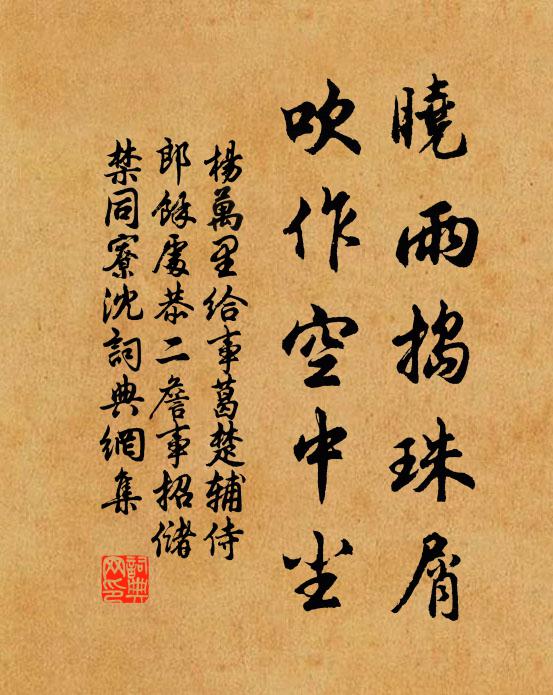 曉雨搗珠屑
吹作空中尘
楊萬里給事葛楚輔侍
郎餘處恭二詹事招儲
禁同寮沈詞典網集
詞典
网印